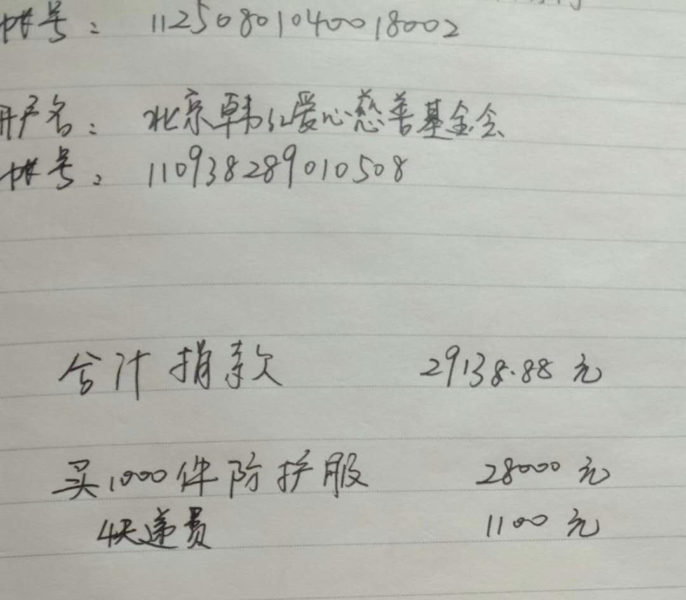 帐号：11250801040018002
开户名：北京韩红爱心慈善基金会
帐号：110938289010508
合计捐款 29138.88 元
买1000件防护服 28000 元
快递费 1100 元